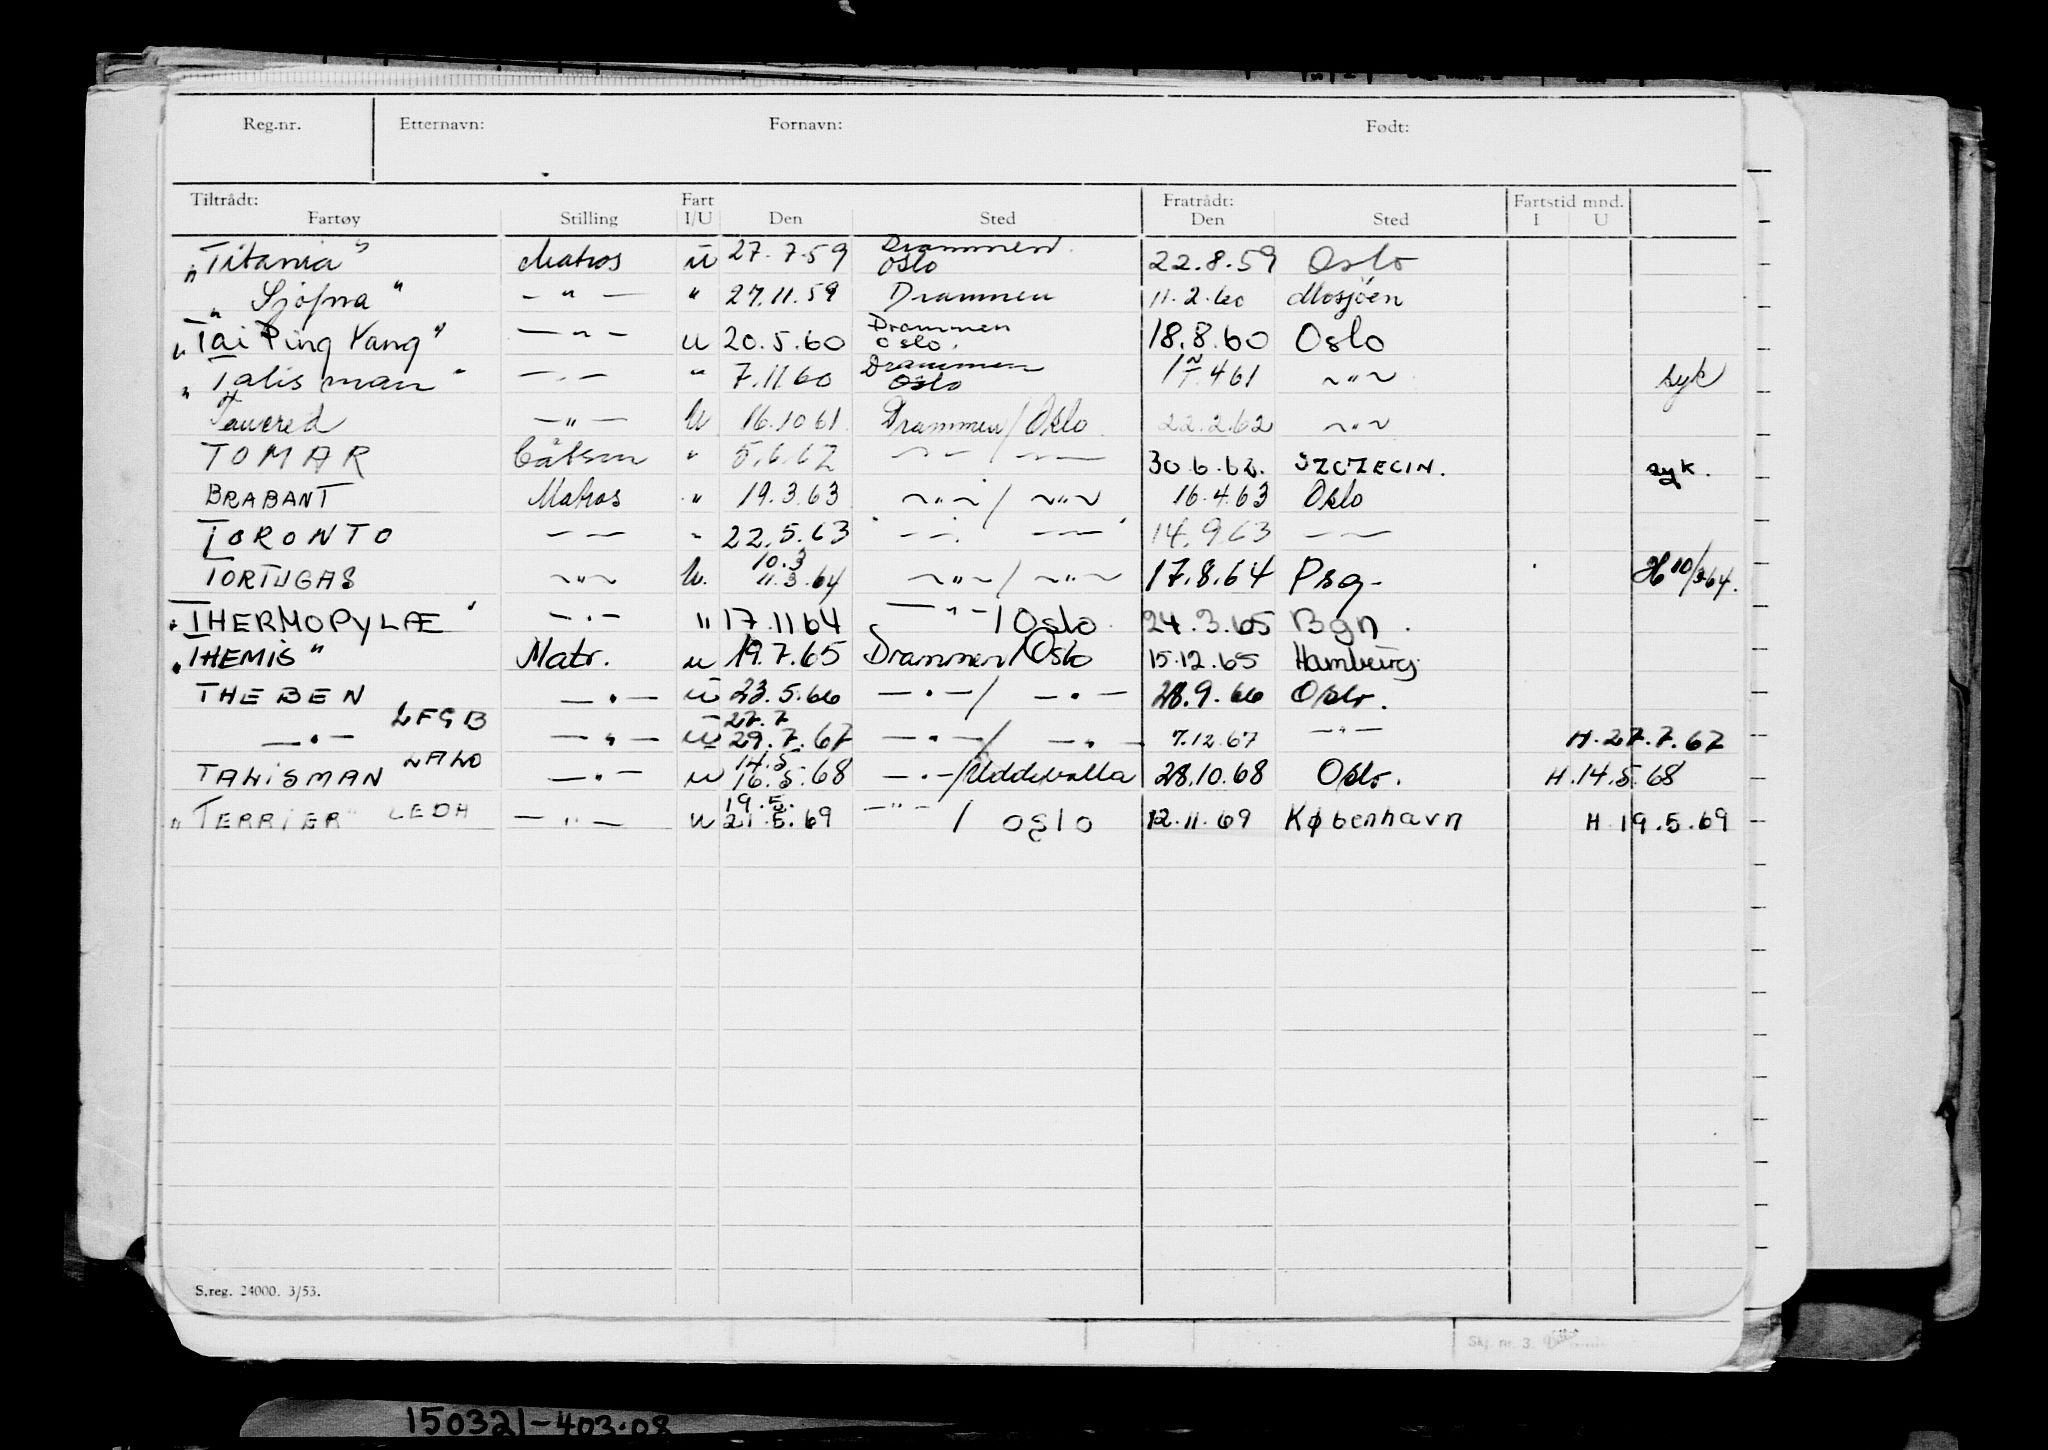 Reg.nr. Etternavn: Fornavn: Født:
Tiltrådt: Fart Fratrådt: Fartstid mnd.
Fartøy Stilling I/U Den Sted Den Sted I U
„Titania" Matros u 27.7.59 Drammen Oslo 22.8.59 Oslo
„Sjofna" — " — " 27.11.59 Drammen 11.2.60 Mosjøen
„Tai Ping Yang" — " — u 20.5.60 Drammen Oslo. 18.8.60 Oslo
„Talisman" — " — " 7.11.60 Drammen Oslo 4.61 ~ " ~ syk
Tancred — " — u 16.10.61 Drammen/Oslo 22.2.62 ~ " ~
TOMAR Båtsm " 5.6.62 — " — / — " — 30.6.62. SZCZECIN. syk.
BRABANT Matros " 19.3.63 ~ " ~ / ~ " ~ 16.4.63 Oslo
TORONTO — — " 22.5.63 — " — — " — 14.9.63 — —
TORTUGAS ~ " ~ u. 10.3 11.3.64 ~ " ~ / ~ " ~ 17.8.64 Psg. H 10/3.64.
„THERMOPYLÆ" — " — " 17.11.64 — " — / Oslo 24.3.65 Bgn.
„THEMIS" Matr. u 19.7.65 Drammen/Oslo 15.12.65 Hamburg.
THEBEN — " — u 23.5.66 — " — / — " — 28.9.66 Oslo.
— " — LFGB — " — u 27.7 29.7.67 — " — / — " — 7.12.67 — " — H.27.7.67
TALISMAN LALO — " — u 14.5 16.5.68 — " — /Uddevalla 28.10.68 Oslo. H.14.5.68
„TERRIER" LEDH — " — u 19.5. 21.5.69 — " — / Oslo 12.11.69 København H.19.5.69
S.reg. 24000. 3/53.
Skj. nr. 3.
150321-403.08